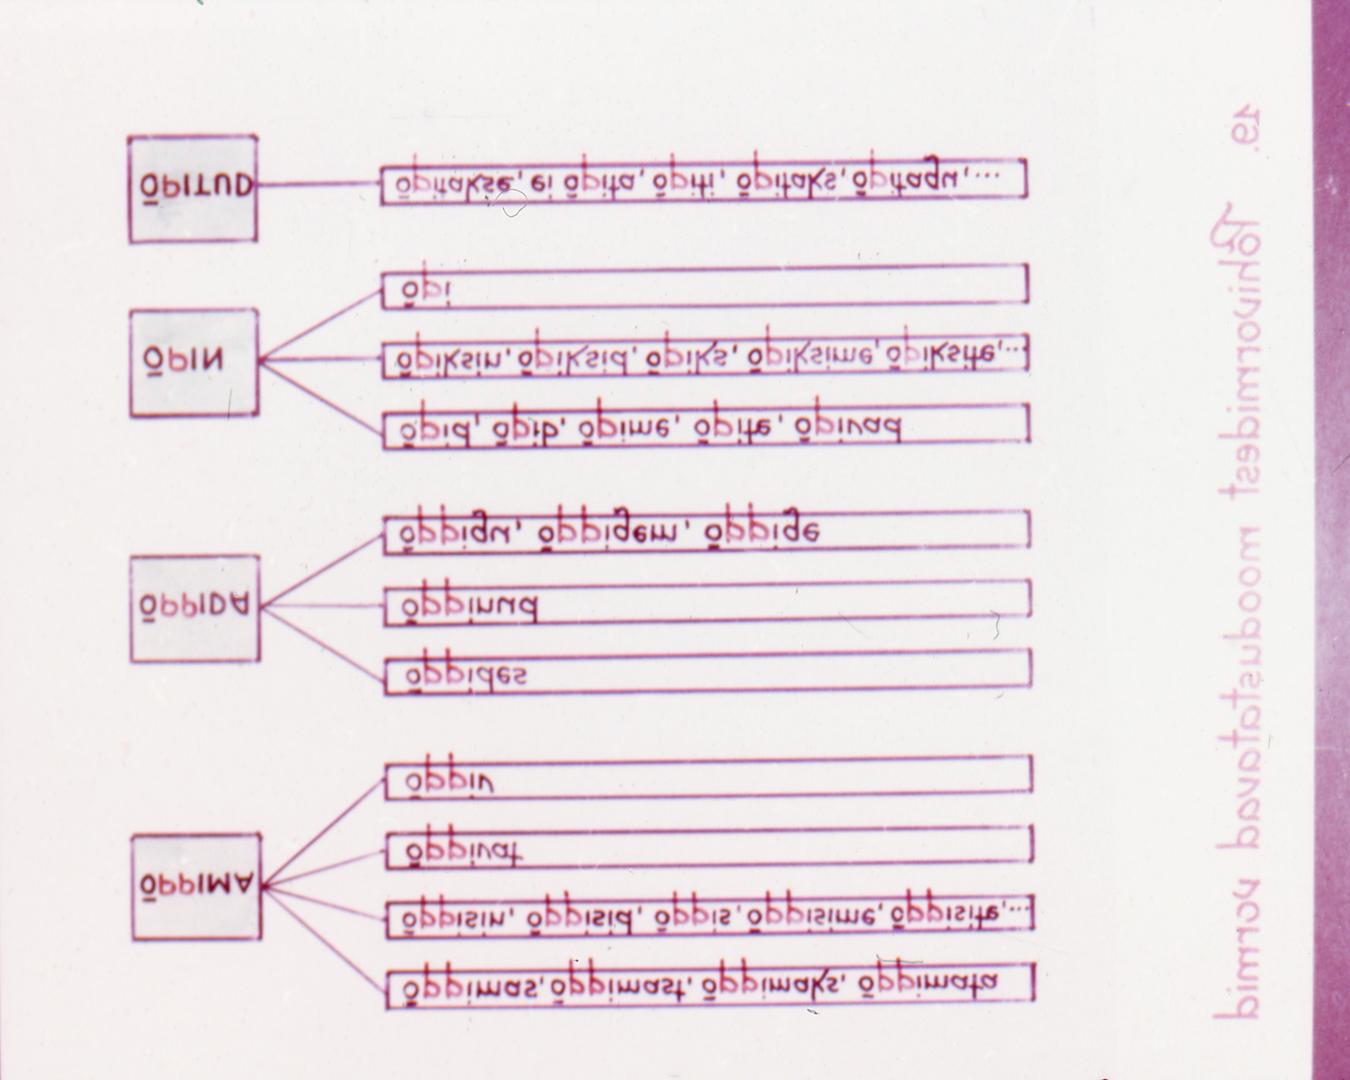 19. Põhivormidest moodustatavad vormid
ÕPPIMA
õppimas, õppimast, õppimaks, õppimata
õppisin, õppisid, õppis, õppisime, õppisite,...
õppivat
õppiv
ÕPPIDA
õppides
õppinud
õppigu, õppigem, õppige
ÕPIN
õpid, õpib, õpime, õpite, õpivad
õpiksin, õpiksid, õpiks, õpiksime, õpiksite,...
õpi
ÕPITUD
õpitakse, ei õpita, õpiti, õpitaks, õpitagu,...